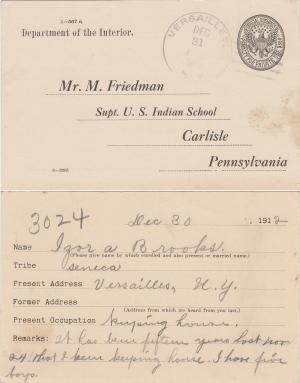 1—567 A
Department of the Interior.
VERSAILLES
DEC
31
Mr. M. Friedman
Supt. U. S. Indian School
Carlisle
Pennsylvania
3024
Dec 30, 1912
Name Igor a Brooks.
(Please give name by which enrolled and also present or married name.)
Tribe Seneca
Present Address Versailles, N.Y.
Former Address
(Address from which we heard from you last.)
Present Occupation keeping house.
Remarks: it has been fifteen years last nov
24 that I been keeping house. I have five
boys.